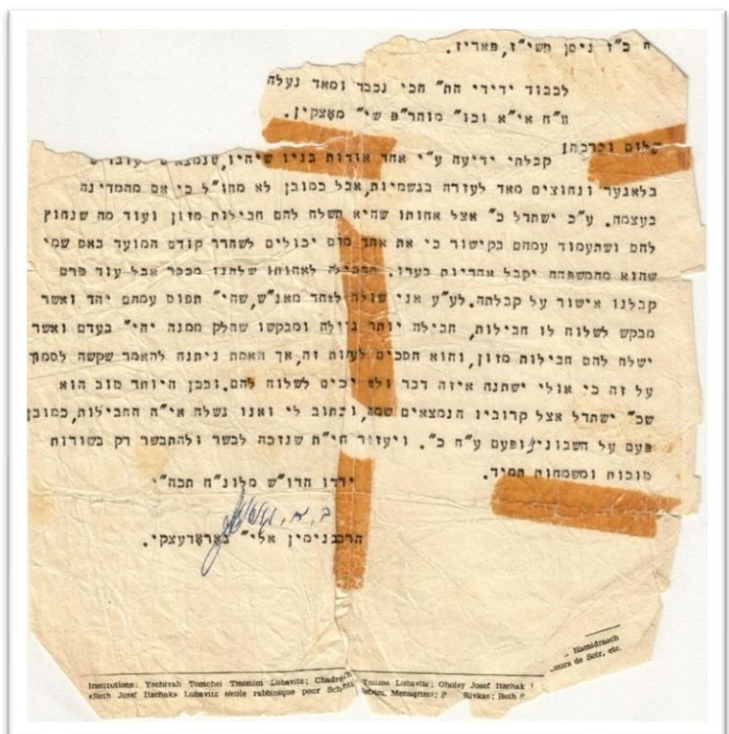 ח כ"ז ניסן תשי"ז, פאריז.
לכבוד ידידי הת" הכי נכבד ומאד נעלה
וו"ח אי"א וכו" מוהר"פ שי" מאצקין.
שלום וברכה!
קבלתי ידיעה ע"י אחד אודות בניו שיחיו, שנמצאים
בלאגער ונחוצים מאד לעזרה בגשמיות, אבל כמובן לא מחו"ל כי אם מהמדינה
בעצמה. ע"כ ישתדל כ" אצל אחותו שהיא תשלח להם חבילות מזון ועוד מה שנחוץ
להם ושתעמוד עמהם בקישור כי את אחד מהם יכולים לשחרר קודם המועד באם שמי
שהוא מהמשפחה יקבל אחריות בעדו. חבילה לאחותו שלחנו מכבר אבל עוד טרם
קבלנו אישור על קבלתה. לע"ע אני שולח לאחד מאנ"ש, שהי" תפוס עמהם יחד ואשר
מבקש לשלוח לו חבילות, חבילה יותר גדולה ומבקשו שחלק ממנה יהי" בעדם ואשר
ישלח להם חבילות מזון, והוא הסכים לעשות זה, אך האמת ניתנה להאמר שקשה לסמוך
על זה כי אולי ישתנה איזה דבר ולא יכים לשלוח להם. ובכן היותר טוב הוא
שכ" ישתדל אצל קרוביו הנמצאים שמה, ויכתוב לי ואנו נשלח אי"ה החבילות, כמובן
פעם על חשבונינו ופעם ע"ח כ". ויעזור חי"ת שנזכה לבשר ולהתבשר רק בשורות
טובות ומשמחות תמיד.
ידדו הדו"ש מלונ"ח תכה"י
הרב בנימין אלי" גאראדעצקי.
Hamidrasch
Cours de Soir, etc.
Institutions: Yechivah Tomchei Tmimim Lubavitz; Chadrei Tmime Lubavitz; Oholey Josef Itzchak
Beth Josef Itzchak Lubavitz école rabbinique pour Menaqrim; Rivkas; Beth